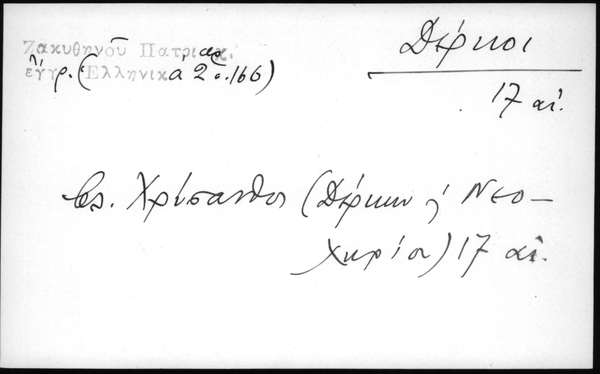 Ζακυθηνοῦ Πατριαρ.
ἐγγρ. (Ἑλληνικά 2 σ. 166)
Δέρκοι
17 αἰ.
βλ. Χρύσανθος (Δέρκων ἤ Νεο-
χωρίου) 17 αἰ.